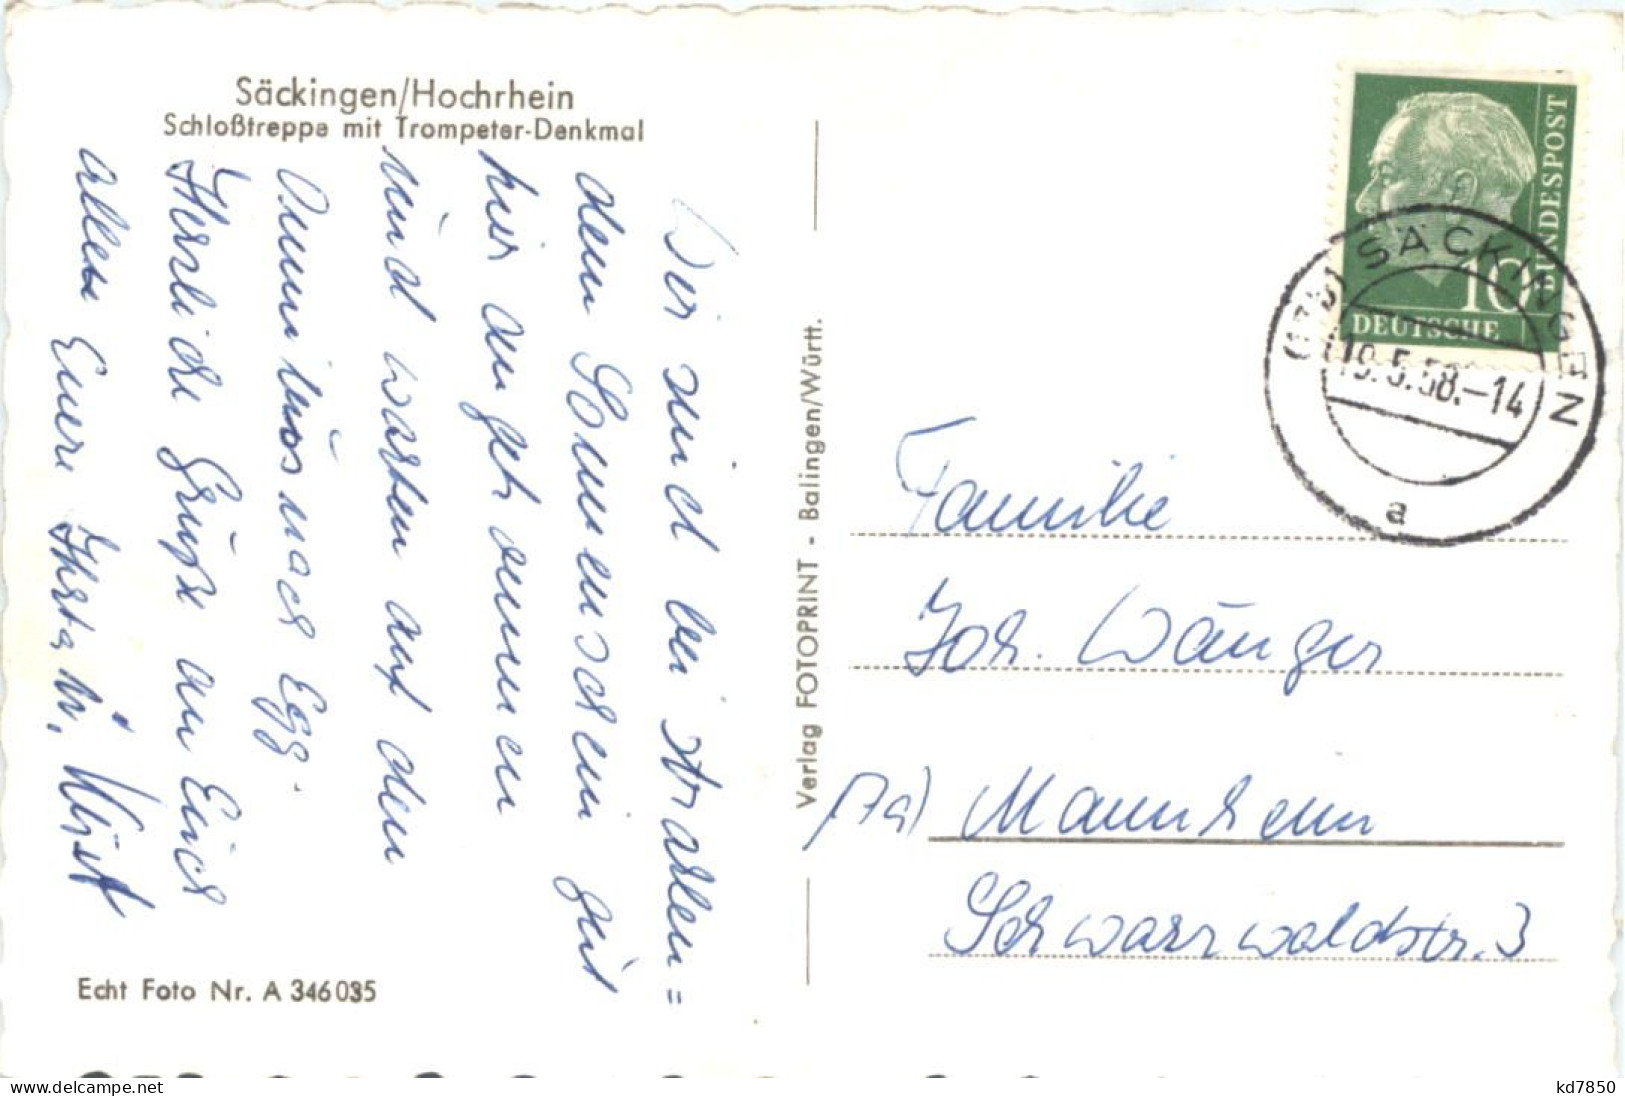 Säckingen/Hochrhein
Schloßtreppe mit Trompeter-Denkmal
Wir sind bei strahlen=
dem Sonnenschein gut
hier angekommen
und warten auf den
Omnibus nach Egg.
Herzliche Grüße an Euch
allen Eure Herta, W. Wüst
Echt Foto Nr. A 346035
Verlag FOTOPRINT - Balingen/Württ.
DEUTSCHE
BUNDESPOST
10
(17b) SÄCKINGEN
19.5.58.-14
a
Familie
Joh. Wänger
(17a) Mannheim
Schwarzwaldstr. 3
delcampe.net
kd7850